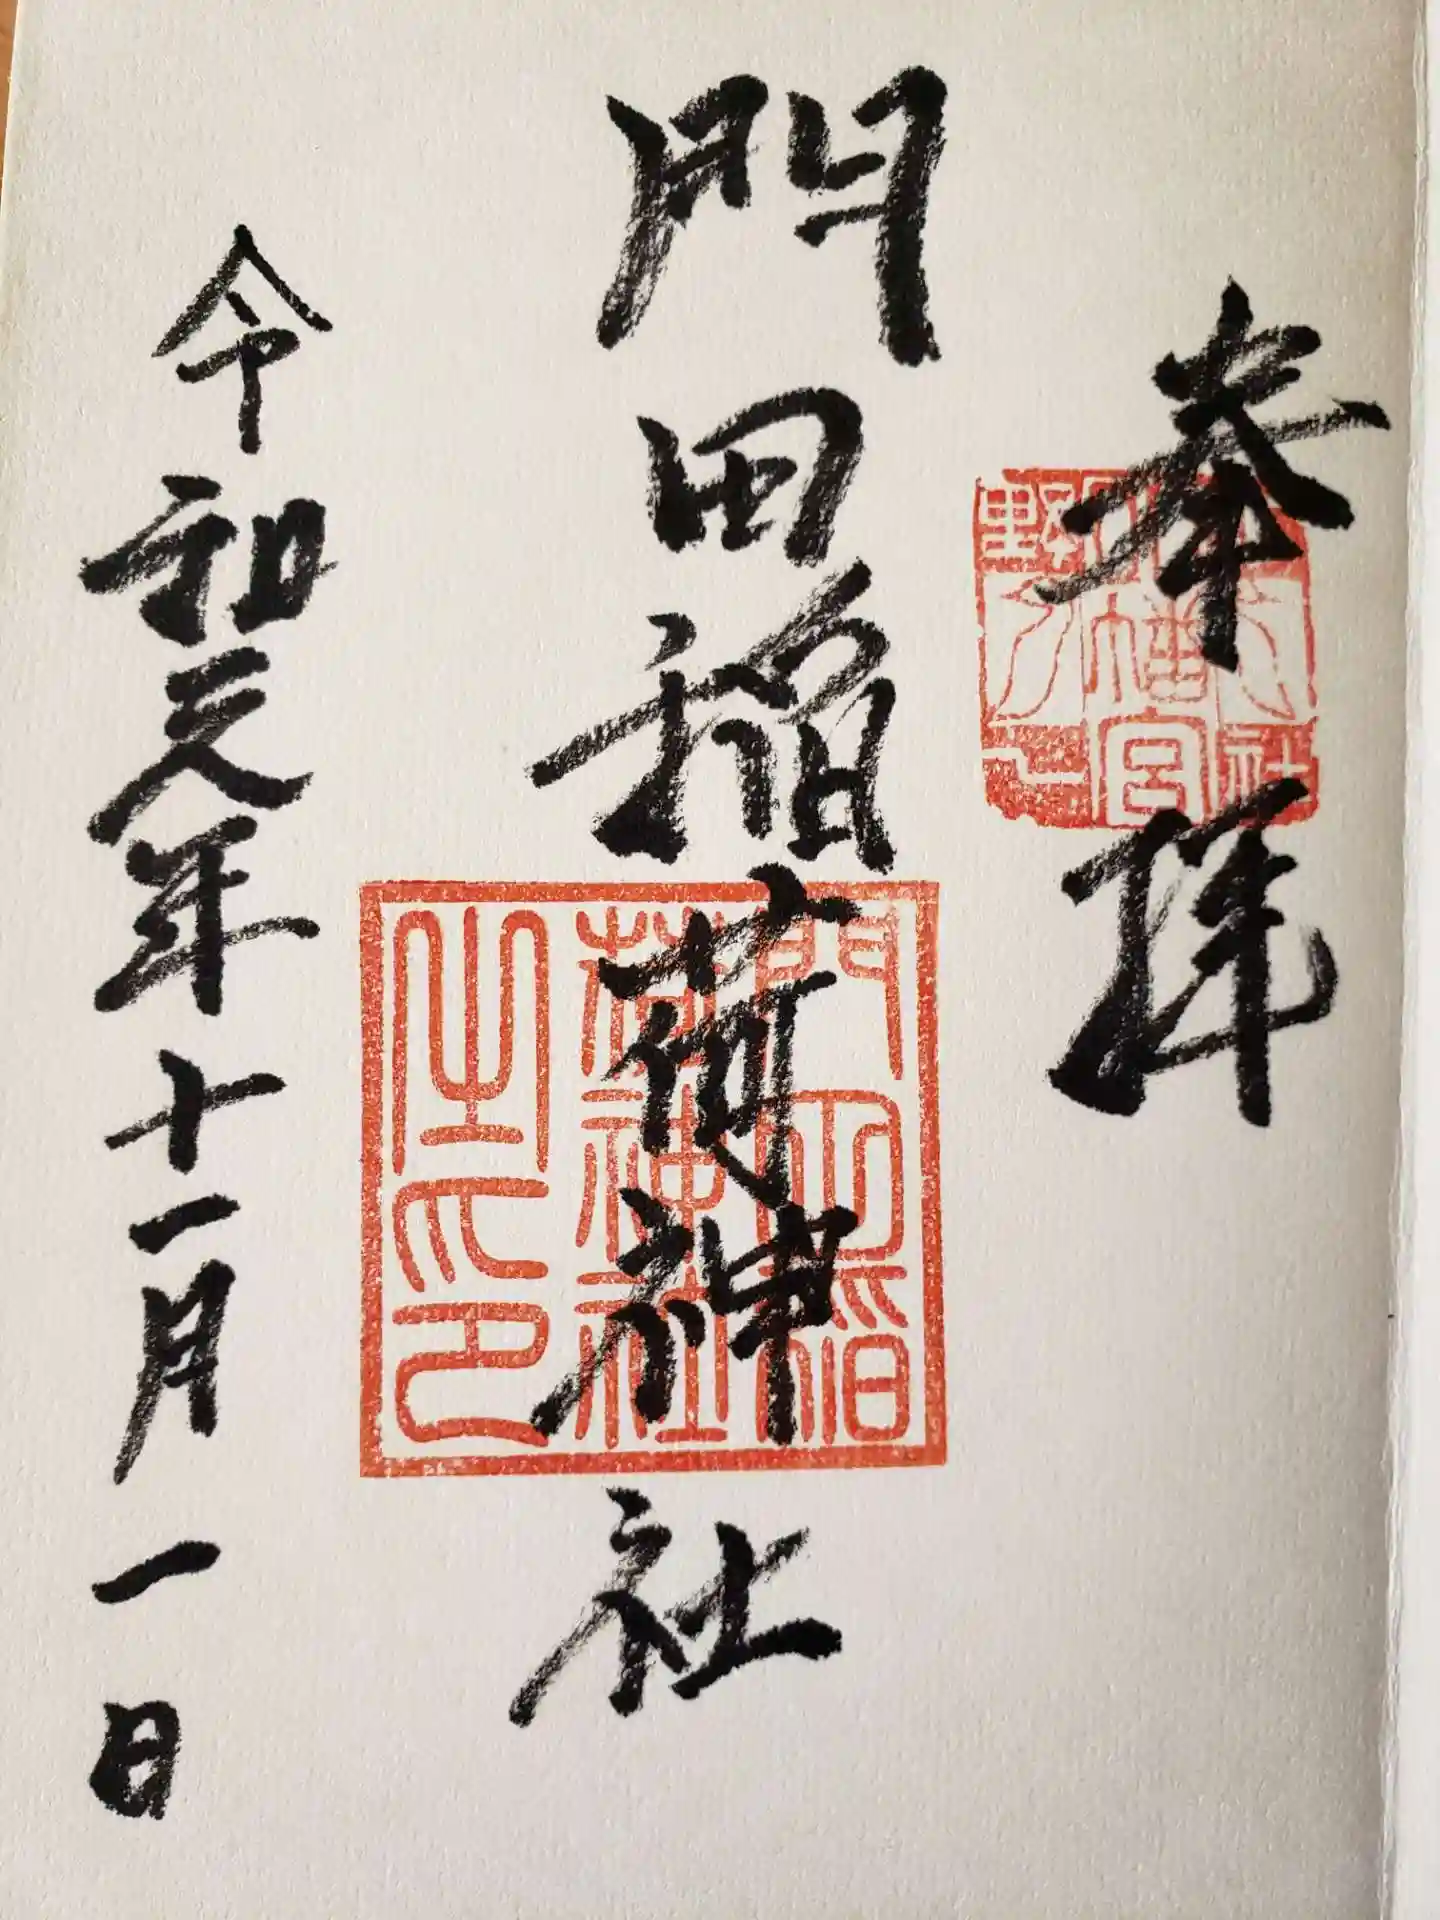 奉拝
門田稲荷神社
門田稲
荷神社
之印
令和元年十一月一日